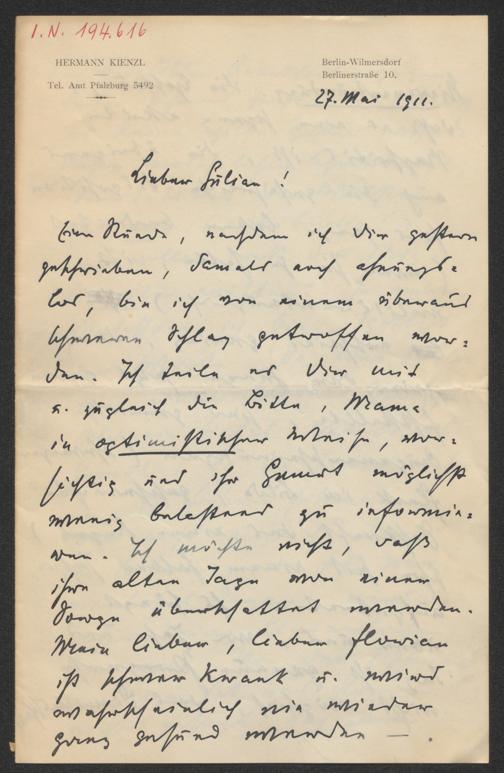 I.N. 194.616
HERMANN KIENZL
Tel. Amt Pfalzburg 5492
Berlin-Wilmersdorf
Berlinerstraße 10.
27. Mai 1911.
Lieber Julian!
Eine Stunde, nachdem ich Dir gestern
geschrieben, damals noch ahnungs-
los, bin ich von einem überaus
schweren Schlag getroffen wor-
den. Ich teile es Dir mit
u. zugleich die Bitte, Mama
in optimistischer Weise, vor-
sichtig und ihr Gemüt möglichst
wenig belastend zu informie-
ren. Ich möchte nicht, daß
ihre alten Tage von einer
Sorge überschattet werden.
Mein lieber, lieber Florian
ist schwer krank u. wird
wahrscheinlich nie wieder
ganz gesund werden —.